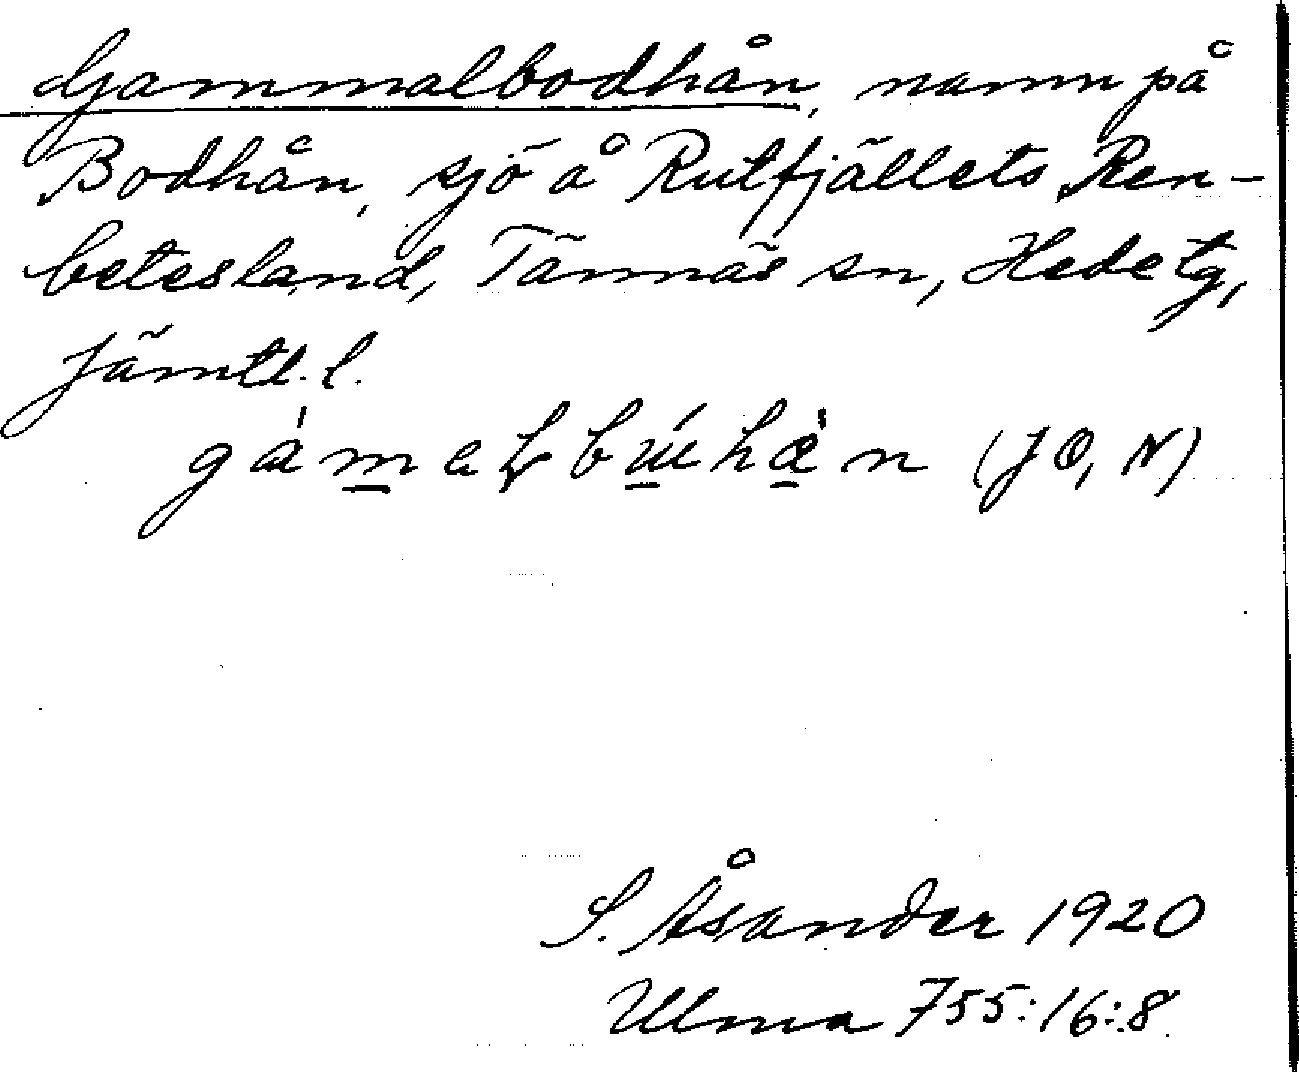 Gammalbodhån, namn på
Bodhån, sjö å Rutfjällets Ren-
betesland, Tännäs sn, Hede tg,
Jämtl. l.
(JO, N)
S. Åsander 1920
Ulma 755:16:8.